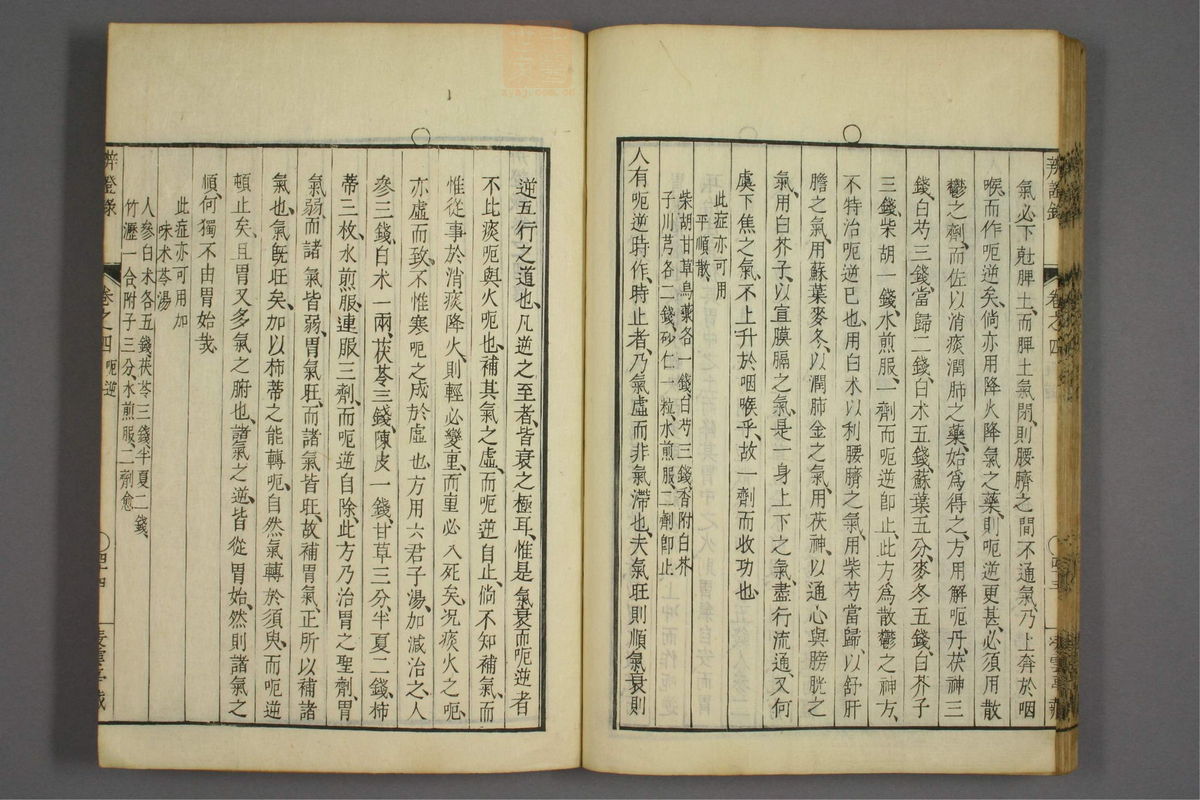 氣必下尅脾土而脾土氣閉則腰臍之間不通氣乃上奔於咽
喉而作呃逆矣倘亦用降火降氣之藥則呃逆更甚必須用散
鬱之劑而佐以消痰潤肺之藥始爲得之方用解呃丹茯神三
錢白芍三錢當歸二錢白朮五錢蘇葉五分麥冬五錢白芥子
三錢柴胡一錢水煎服一劑而呃逆即止此方爲散鬱之神方
不特治呃逆已也用白朮以利腰臍之氣用柴芍當歸以舒肝
膽之氣用蘇葉麥冬以潤肺金之氣用茯神以通心與膀胱之
氣用白芥子以宣膜膈之氣是一身上下之氣盡行流通又何
虞下焦之氣不上升於咽喉乎故一劑而收功也
此症亦可用
平順散
柴胡甘草烏藥各一錢白芍三錢香附白芥
子川芎各二錢砂仁一粒水煎服二劑即止
人有呃逆時作時止者乃氣虛而非氣滯也夫氣旺則順氣衰則
辨證錄 卷之四
逆五行之道也凡逆之至者皆衰之極耳惟是氣衰而呃逆者
不比痰呃與火呃也補其氣之虛而呃逆自止倘不知補氣而
惟從事於消痰降火則輕必變重而重必入死矣況痰火之呃
亦虛而致不惟寒呃之成於虛也方用六君子湯加減治之人
參三錢白朮一兩茯苓三錢陳皮一錢甘草三分半夏二錢柿
蒂三枚水煎服連服三劑而呃逆自除此方乃治胃之聖劑胃
氣弱而諸氣皆弱胃氣旺而諸氣皆旺故補胃氣正所以補諸
氣也氣既旺矣加以柿蒂之能轉呃自然氣轉於須臾而呃逆
頓止矣且胃又多氣之腑也諸氣之逆皆從胃始然則諸氣之
順何獨不由胃始哉
此症亦可用加
味朮苓湯
人參白朮各五錢茯苓三錢半夏二錢
竹瀝一合附子三分水煎服二劑愈
辨證錄 卷之四 呃逆 四十四